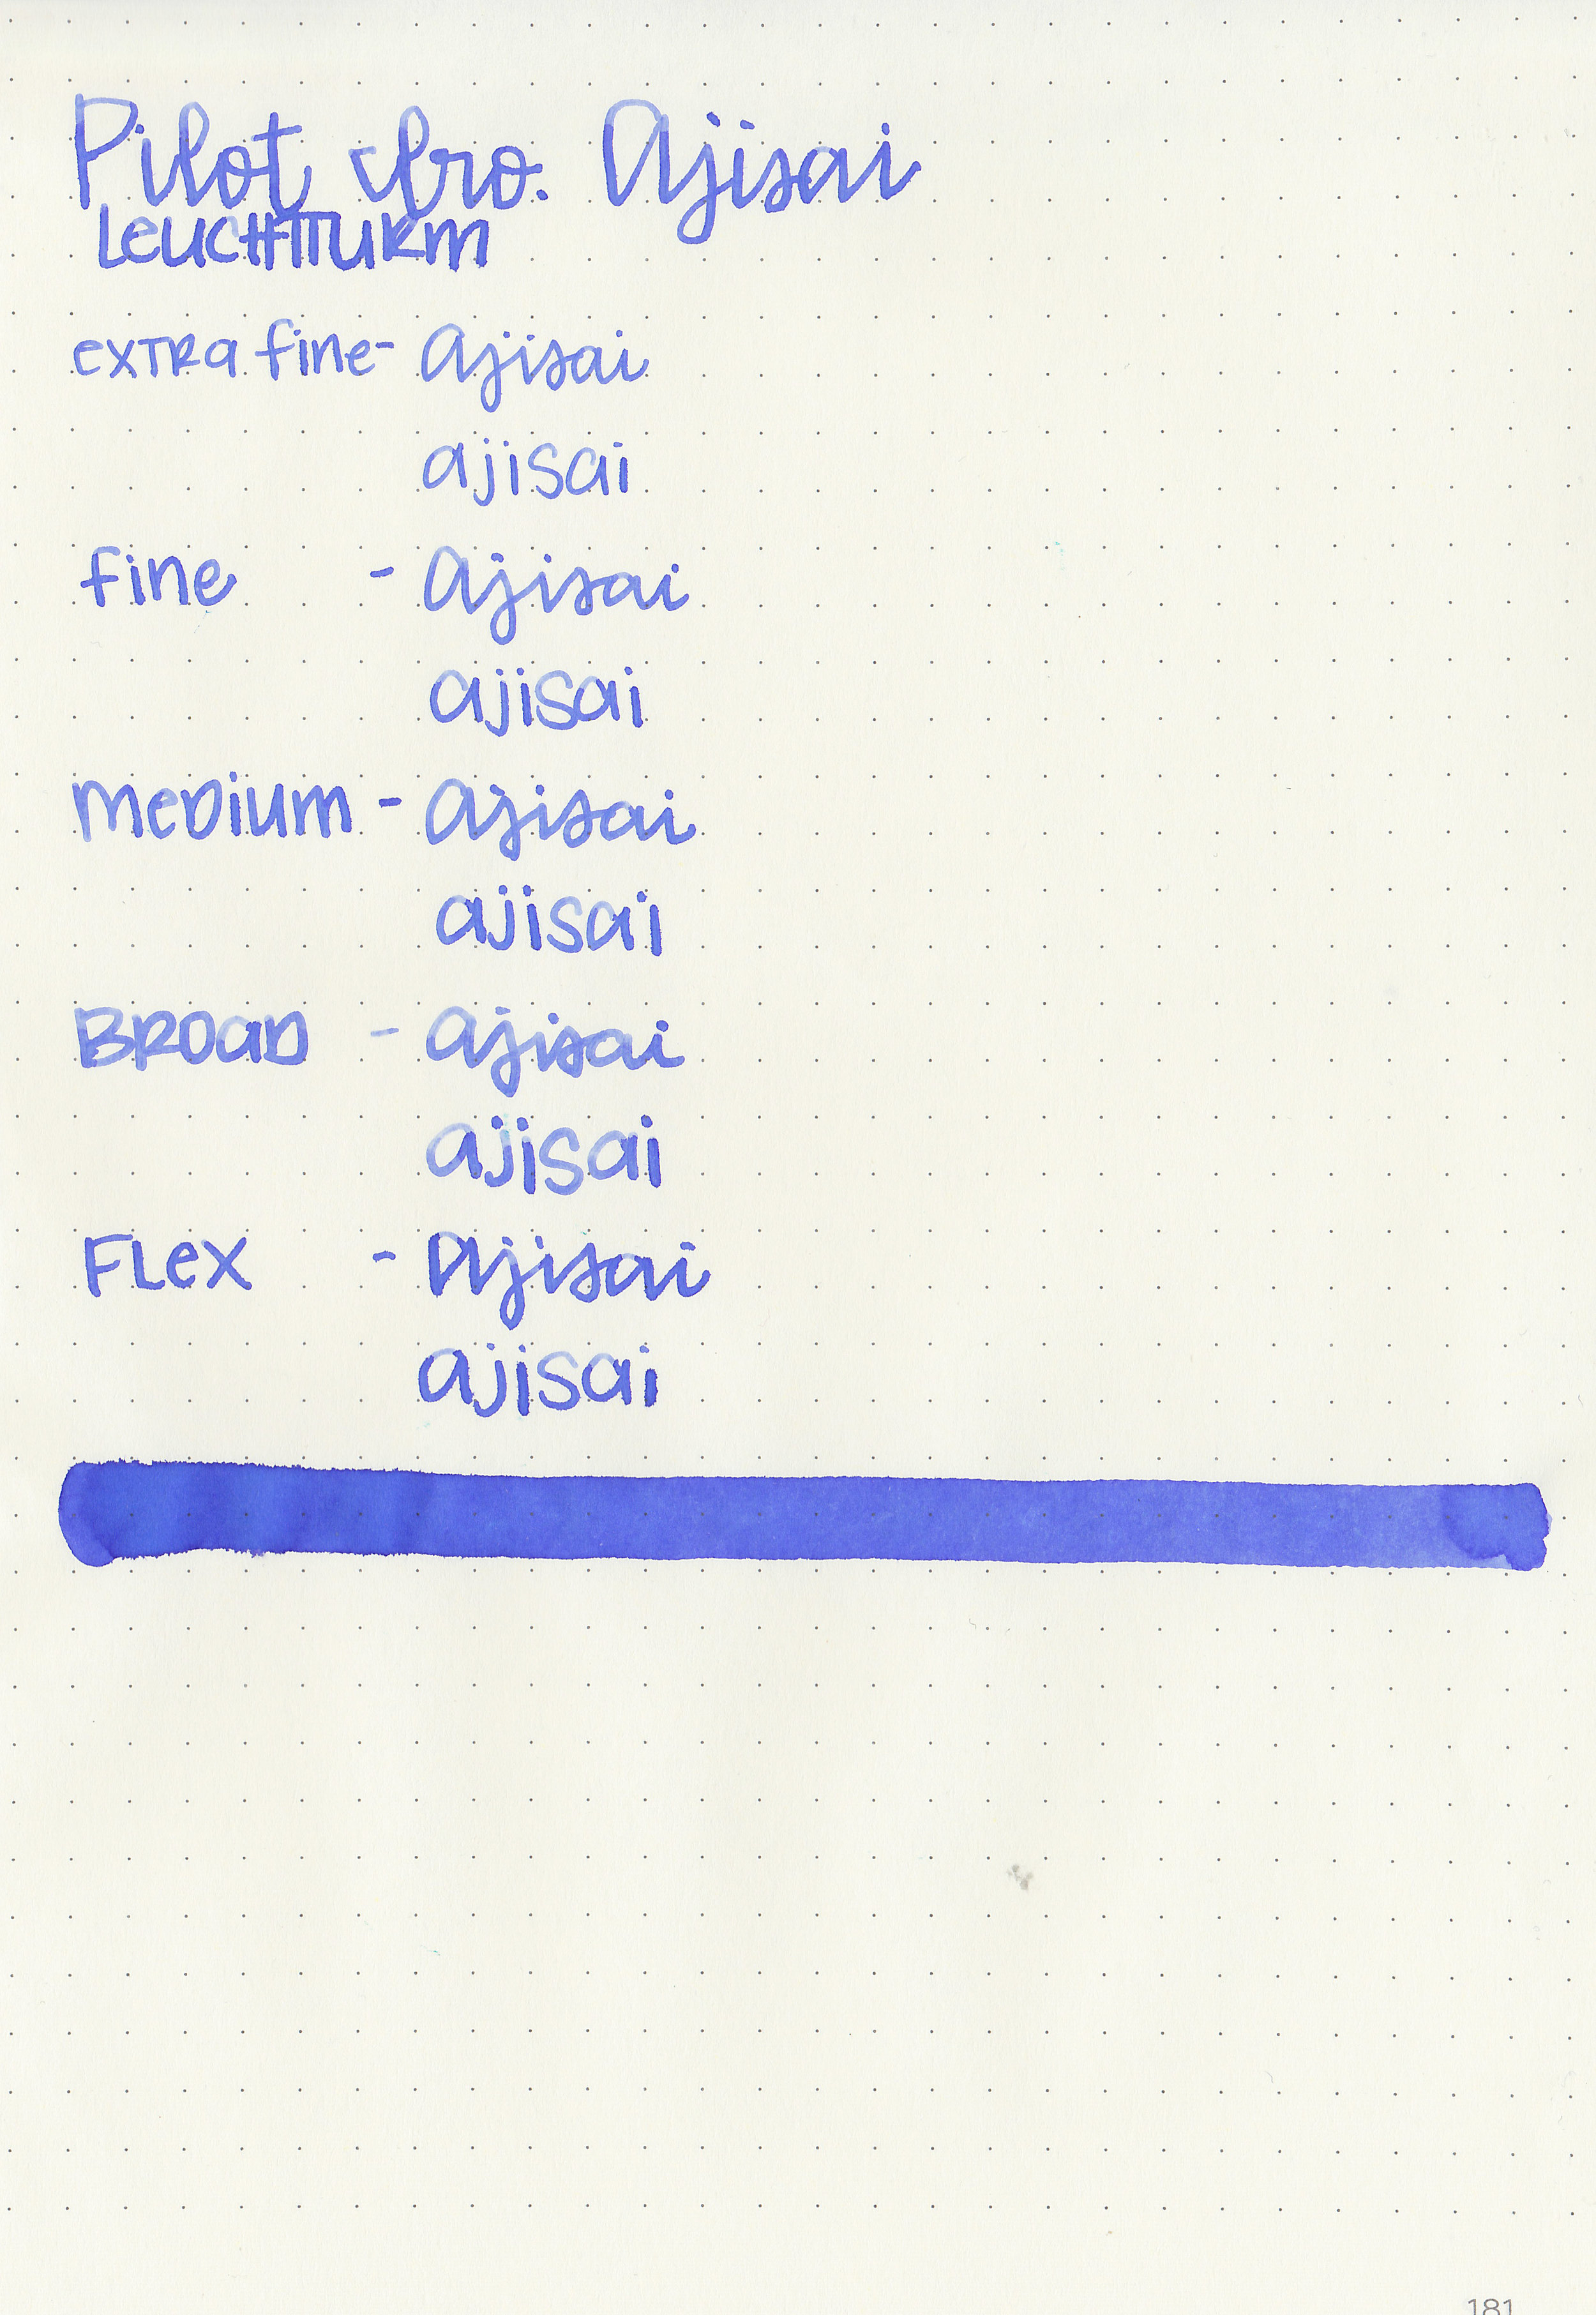 Pilot Iro. Ajisai
Leuchtturm
extra fine - Ajisai
ajisai
fine - Ajisai
ajisai
Medium - Ajisai
ajisai
Broad - Ajisai
ajisai
Flex - Ajisai
ajisai
181